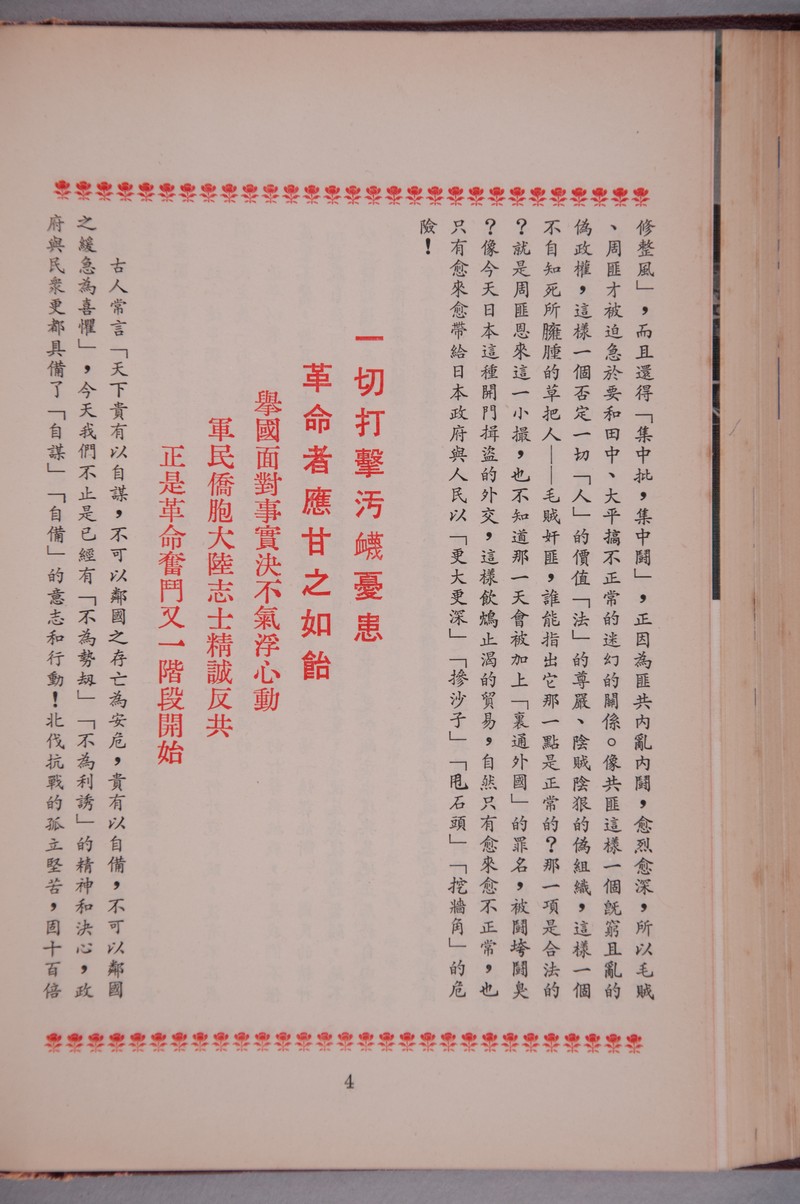 修整風」，而且還得「集中批，集中鬪」，正因為匪共內亂內鬪，愈烈愈深，所以毛賊
、周匪才被迫急於要和田中、大平搞不正常的迷幻的關係。像共匪這樣一個既窮且亂的
偽政權，這樣一個否定一切「人」的價值「法」的尊嚴、陰賊陰狠的偽組織，這樣一個
不自知死所臃腫的草把人——毛賊奸匪，誰能指出它那一點是正常的？那一項是合法的
？就是周匪恩來這一小撮，也不知道那一天會被加上「裏通外國」的罪名，被鬪垮鬪臭
？像今天日本這種開門揖盜的外交，這樣飲鴆止渴的貿易，自然只有愈來愈不正常，也
只有愈來愈帶給日本政府與人民以「更大更深」「摻沙子」「甩石頭」「挖牆角」的危
險！
一切打擊汚衊憂患
革命者應甘之如飴
舉國面對事實決不氣浮心動
軍民僑胞大陸志士精誠反共
正是革命奮鬥又一階段開始
古人常言「天下貴有以自謀，不可以鄰國之存亡為安危，貴有以自備，不可以鄰國
之緩急為喜懼」，今天我們不止是已經有「不為勢刼」「不為利誘」的精神和決心，政
府與民衆更都具備了「自謀」「自備」的意志和行動！北伐抗戰的孤立堅苦，固十百倍
4